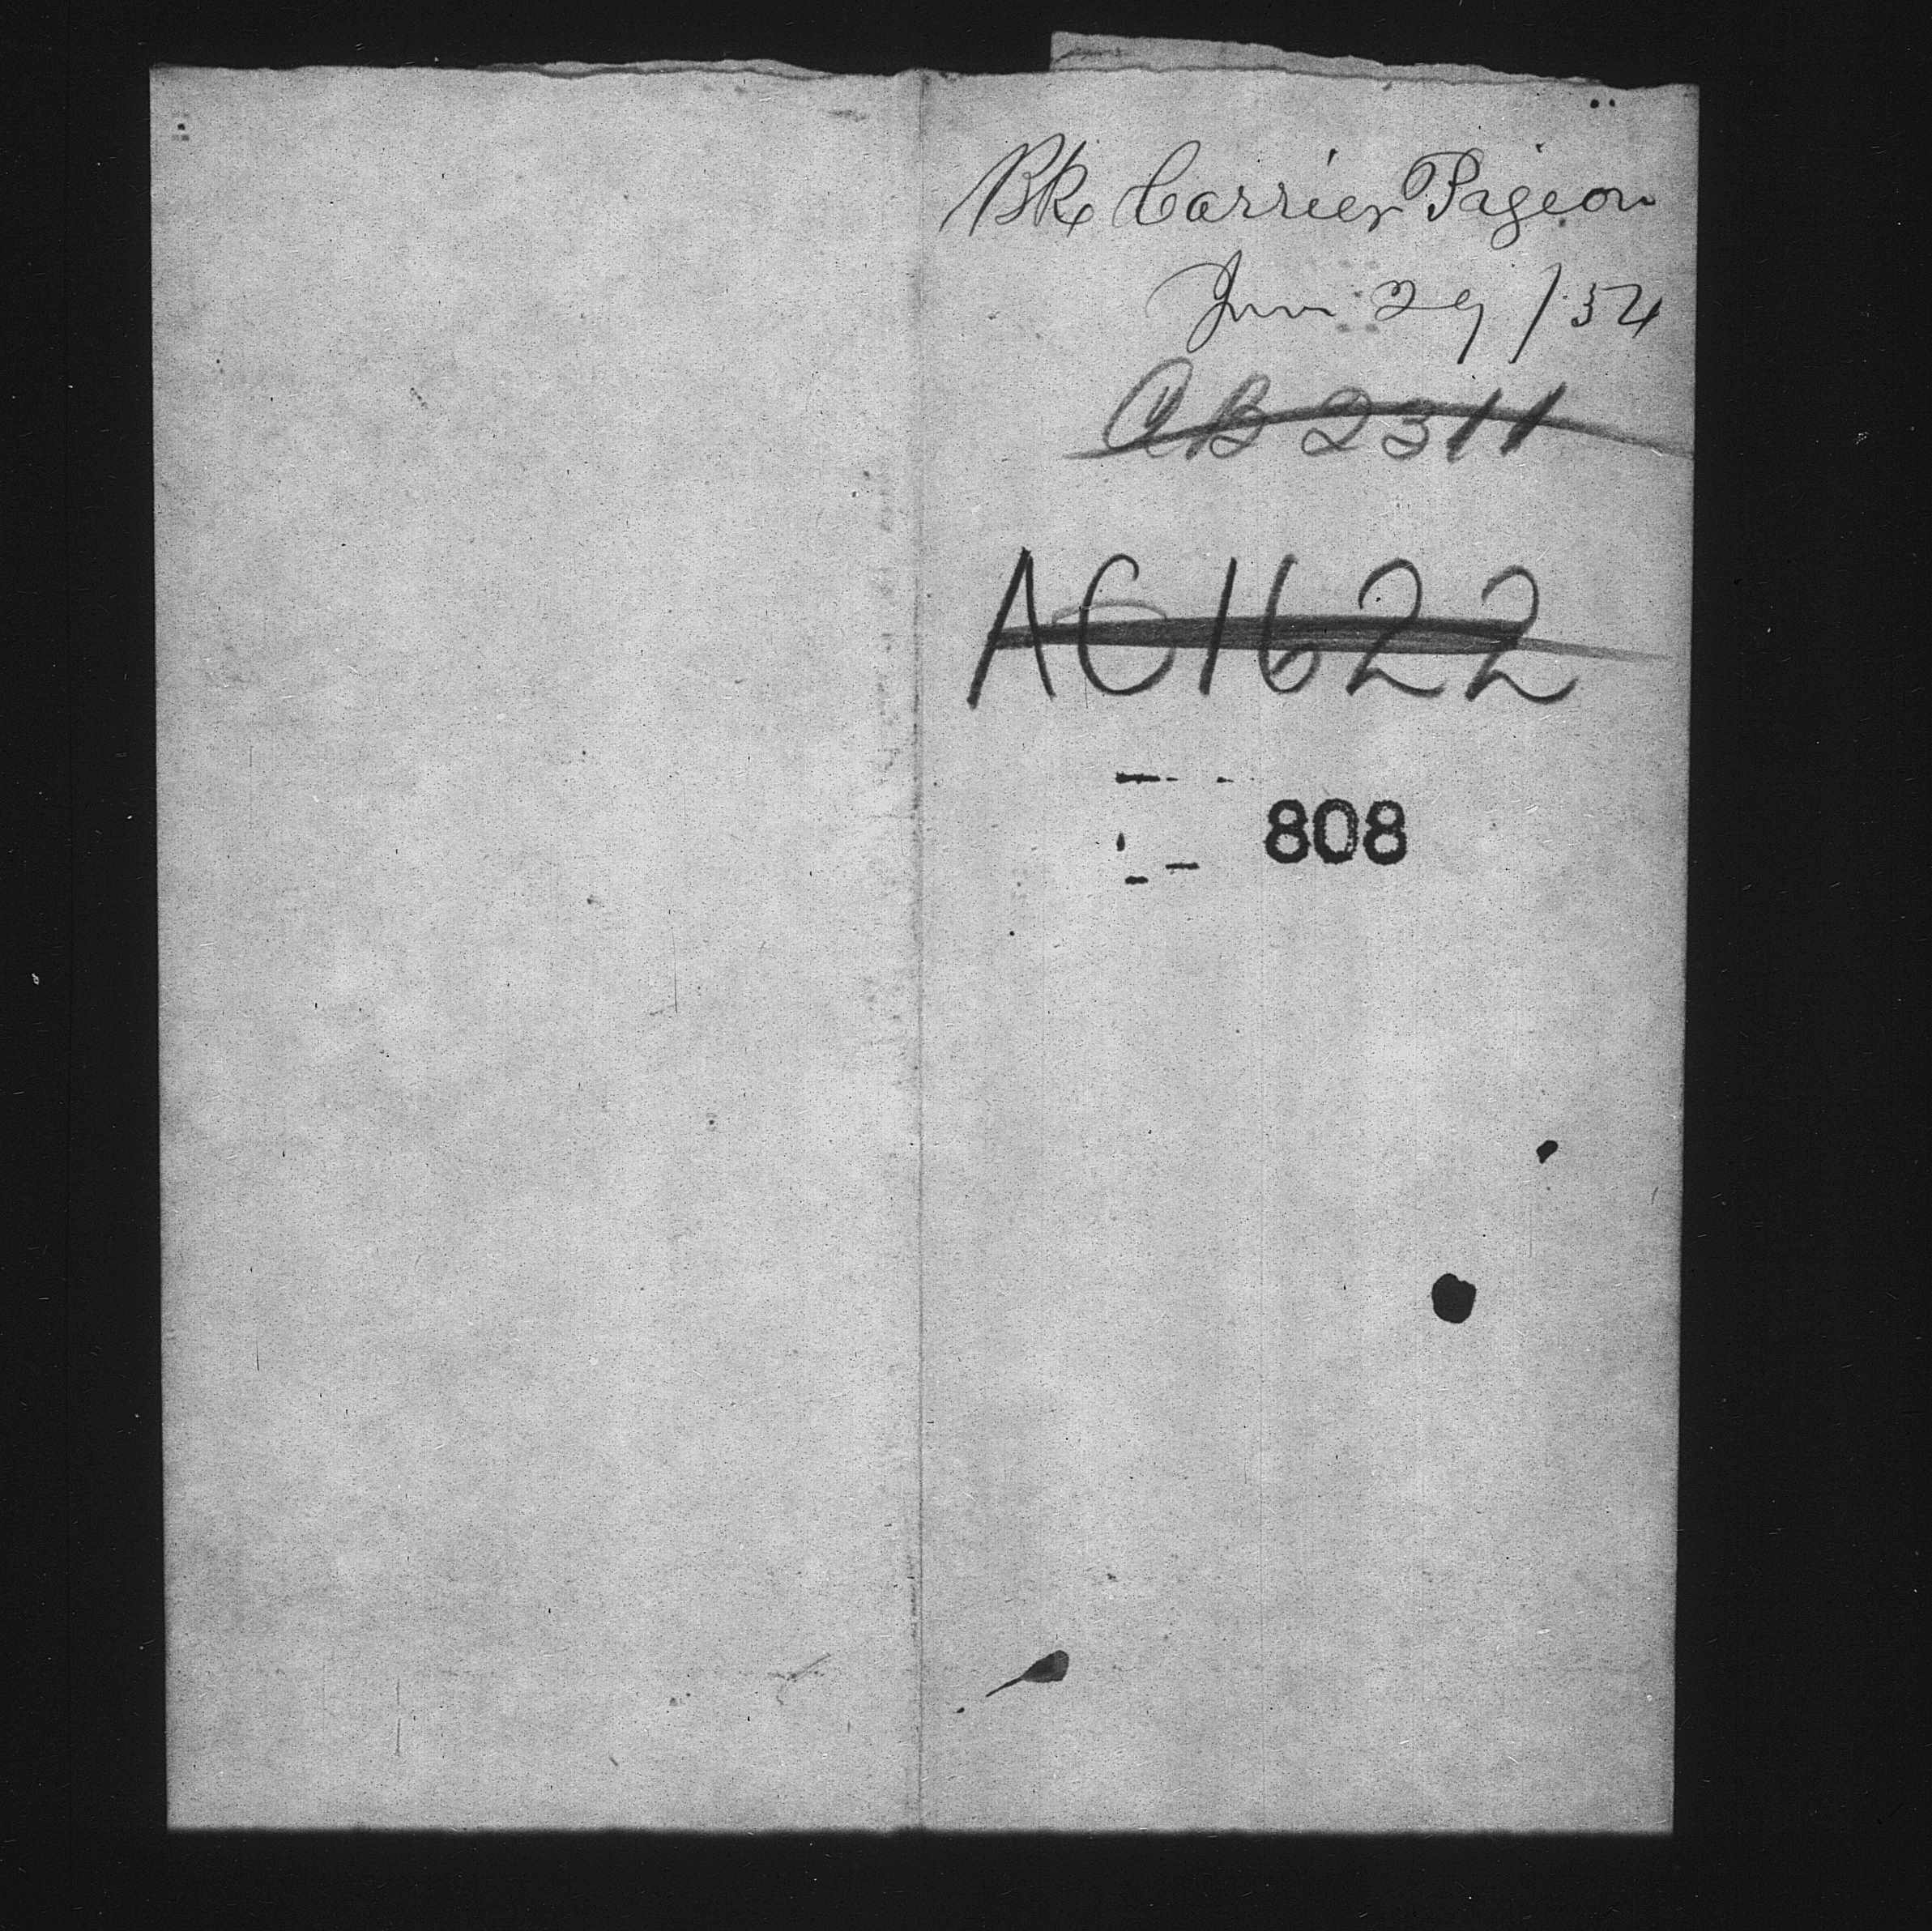 Bk Carrier Pigeon
Jun 29 / 54
AB 2311
AC1622
808